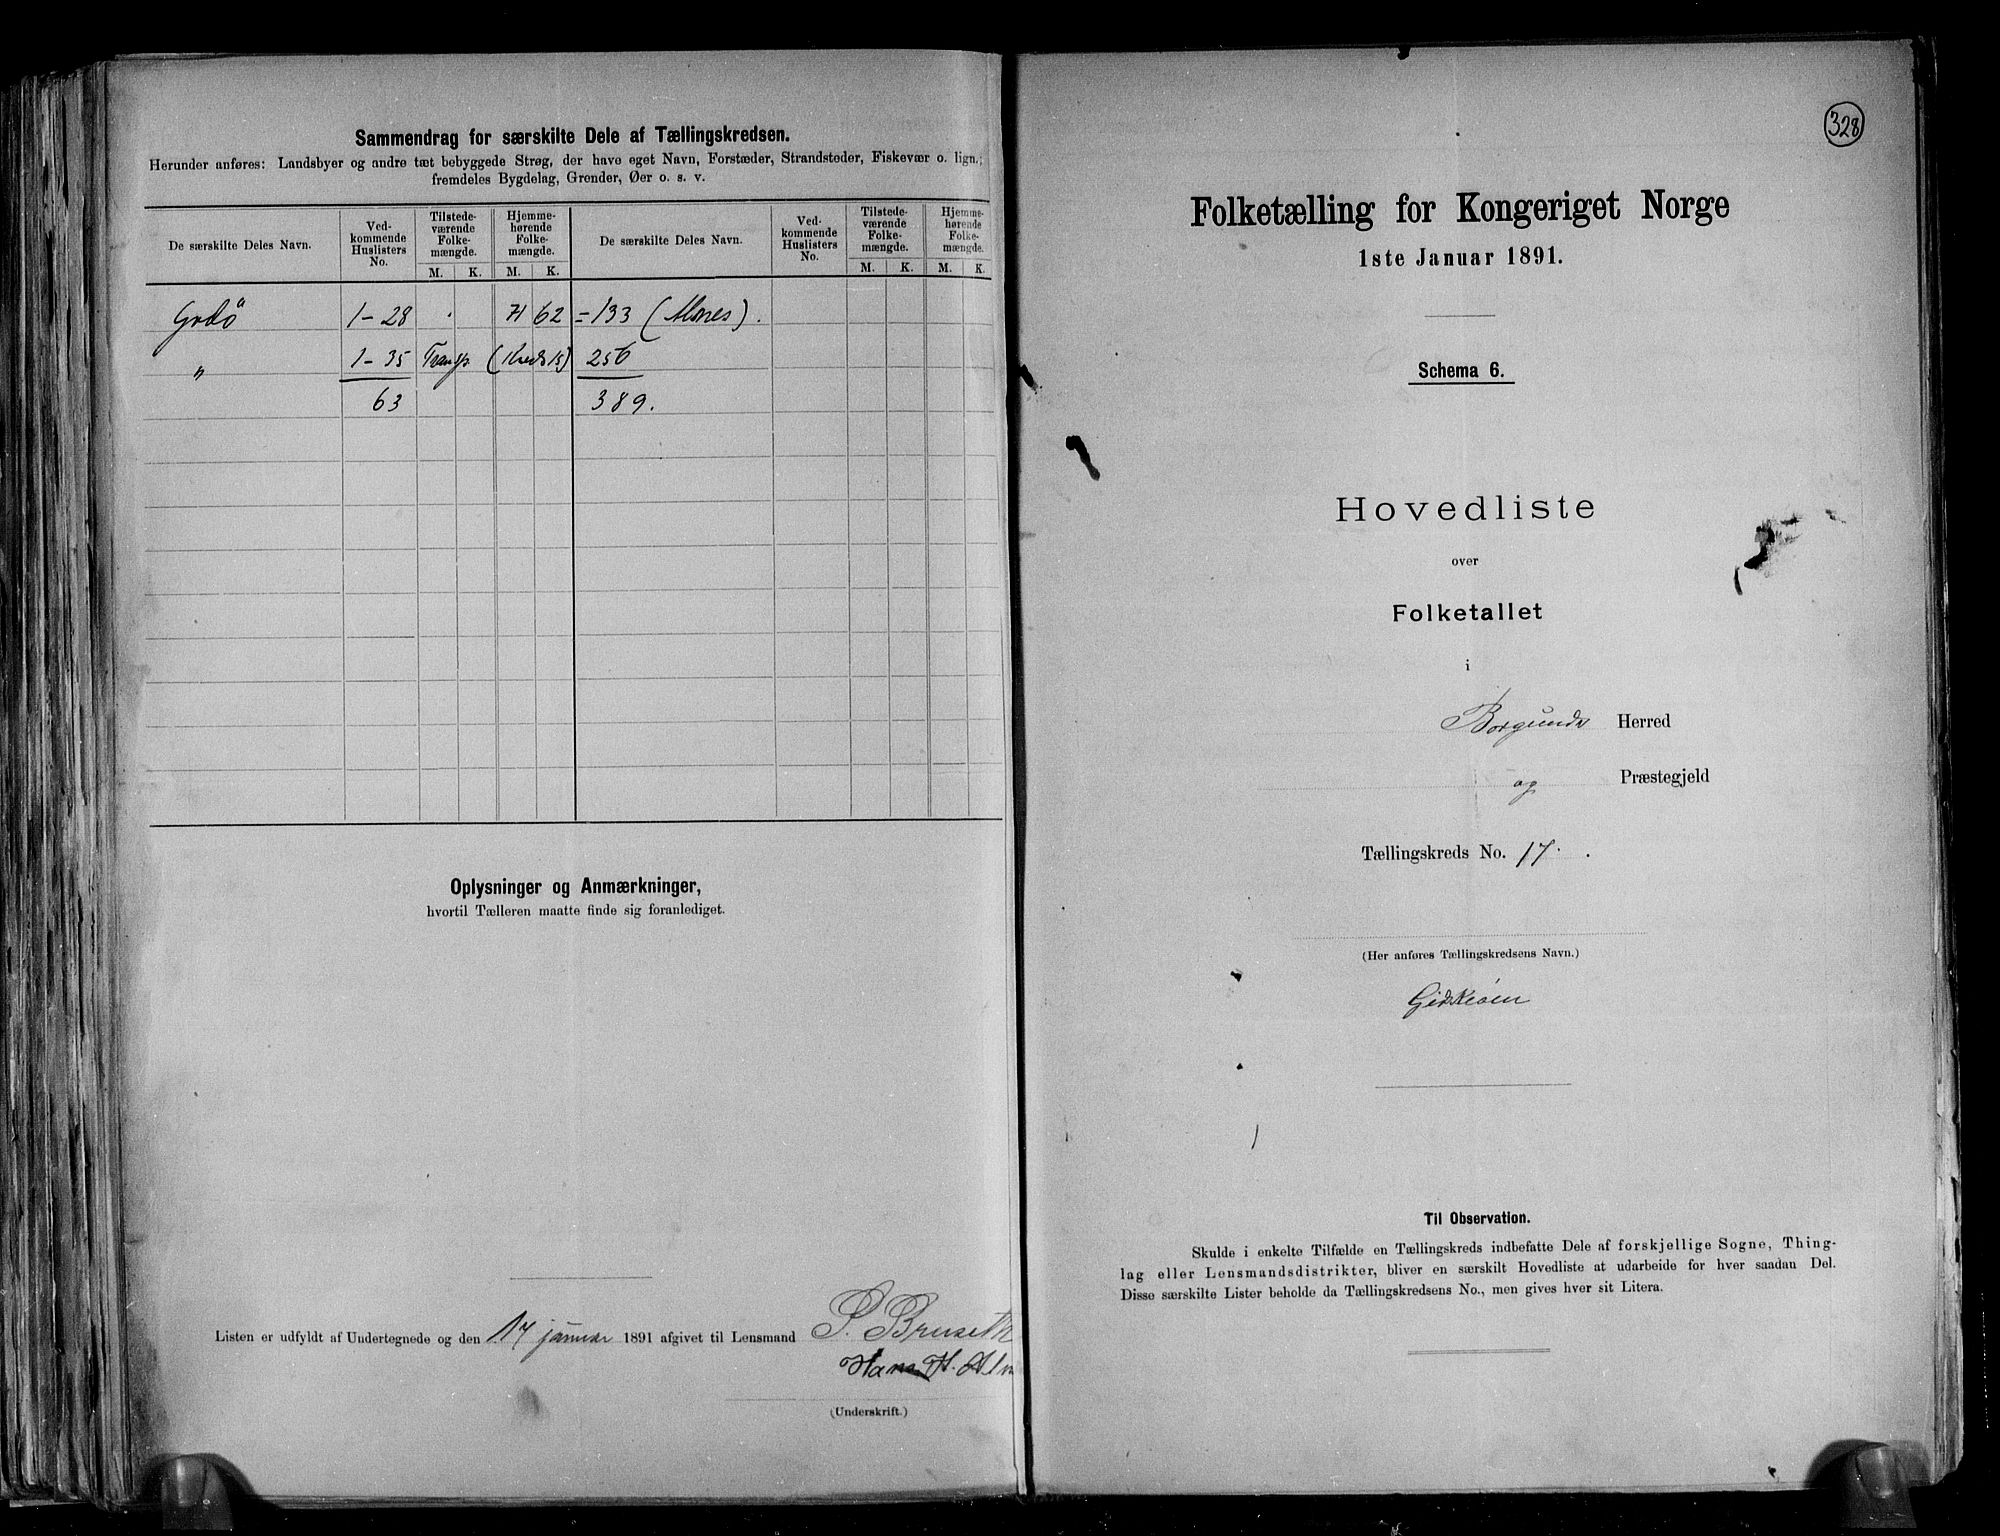 Sammendrag for særskilte Dele af Tællingskredsen.
Herunder anføres: Landsbyer og andre tæt bebyggede Strøg, der have eget Navn, Forstæder, Strandsteder, Fiskevær o. lign.;
fremdeles Bygdelag, Grender, Øer o. s. v.
De særskilte Deles Navn. Ved-kommende Huslisters No. Tilstede-værende Folke-mængde. Hjemme-hørende Folke-mængde. De særskilte Deles Navn. Ved-kommende Huslisters No. Tilstede-værende Folke-mængde. Hjemme-hørende Folke-mængde.
M. K. M. K. M. K. M. K.
Godö 1-28 71 62 =133 (Alnes).
" 1-35 Transp. (Kreds 15) 256
63 389.
Oplysninger og Anmærkninger,
hvortil Tælleren maatte finde sig foranlediget.
Listen er udfyldt af Undertegnede og den 17 januar 1891 afgivet til Lensmand S. Bruseth
Hans H. Aln
(Underskrift.)
328
Folketælling for Kongeriget Norge
1ste Januar 1891.
Schema 6.
Hovedliste
over
Folketallet
i
Borgunds Herred
og Præstegjeld
Tællingskreds No. 17.
(Her anføres Tællingskredsens Navn.)
Gidskeöen
Til Observation.
Skulde i enkelte Tilfælde en Tællingskreds indbefatte Dele af forskjellige Sogne, Thing-
lag eller Lensmandsdistrikter, bliver en særskilt Hovedliste at udarbeide for hver saadan Del.
Disse særskilte Lister beholde da Tællingskredsens No., men gives hver sit Litera.